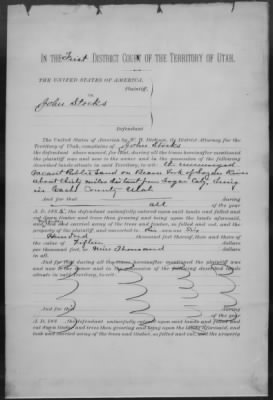 IN THE First DISTRICT COURT OF THE TERRITORY OF UTAH.
THE UNITED STATES OF AMERICA,
Plaintiff,
vs.
John Stocks
Defendant
The United States of America by W. H. Dickson, its District Attorney for the
Territory of Utah, complains of John Stocks
the defendant above named, for that, during all the times hereinafter mentioned
the plaintiff was and now is the owner and in the possession of the following
described lands situate in said Territory, to wit: the unsurveyed
vacant Public Land on Fork of Logan River
about thirty miles distant from Logan City, being
in Cache County Utah
And for that during
all of the year
A. D. 188 , the defendant unlawfully entered upon said lands and felled and
cut down timber and trees then growing and being upon the lands aforesaid,
and took and carried away of the trees and timber, so felled and cut, and the
property of the plaintiff, and converted to his own use Six
Hundred thousand feet thereof, then and there of
the value of Fifteen dollars
per thousand feet, or Nine Thousand dollars
in all.
And for that during all the times hereinafter mentioned the plaintiff was
and now is the owner and in the possession of the following described lands
situate in said Territory, to wit:
And for that during
of the year
A. D. 188 , the defendant unlawfully entered upon said lands and felled and
cut down timber and trees then growing and being upon the lands aforesaid, and
took and carried away of the trees and timber, so felled and cut, and the property